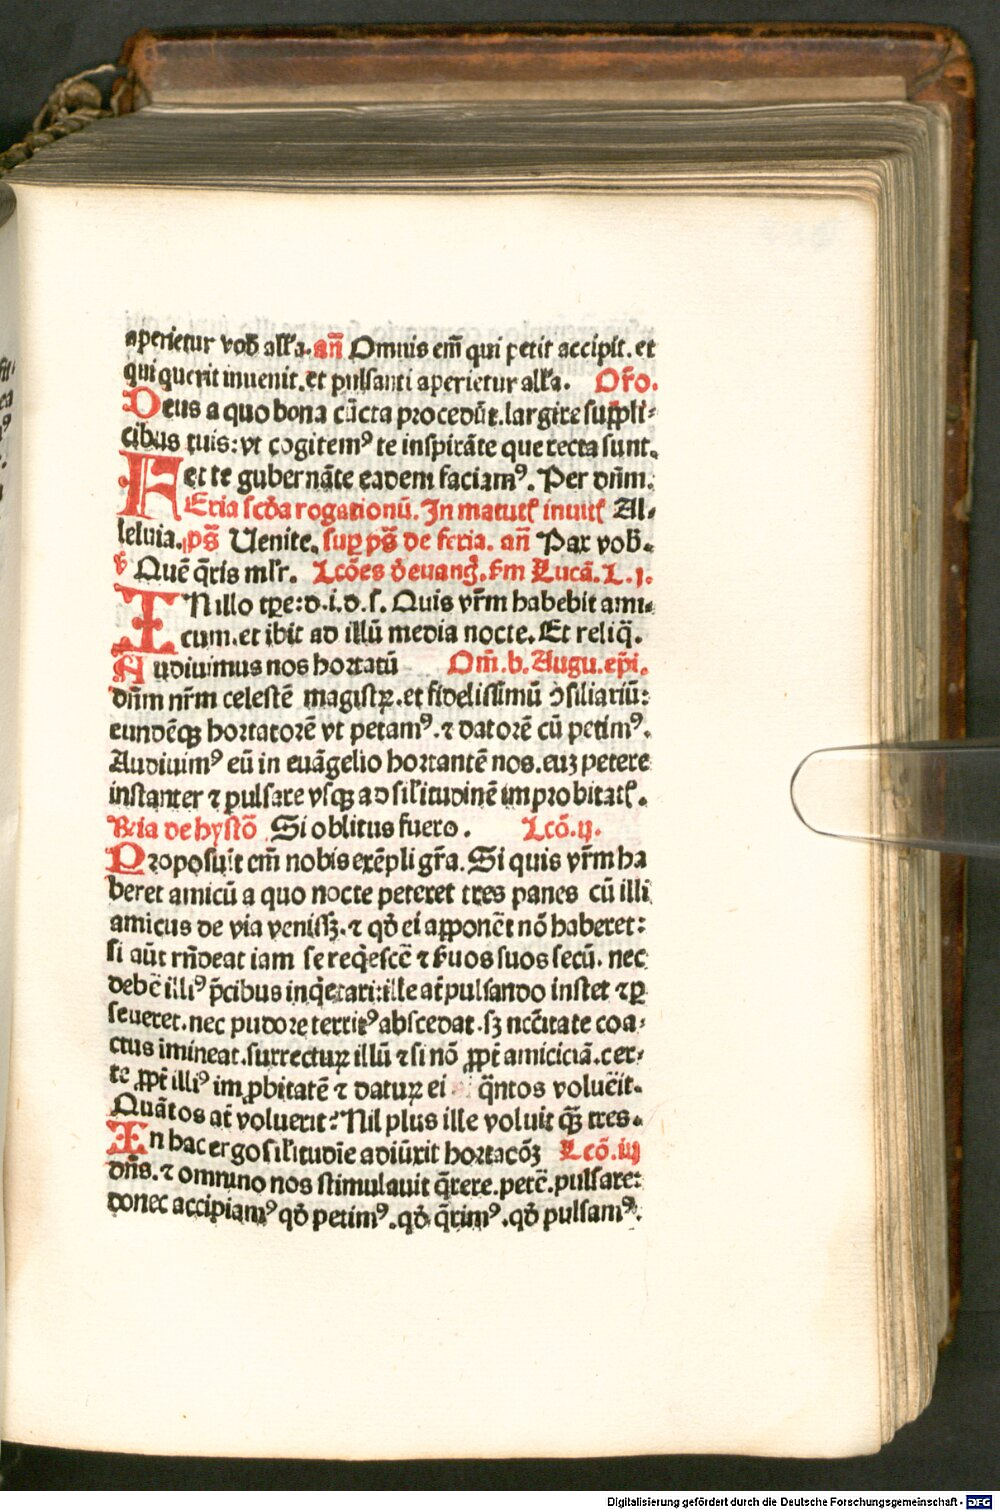 aperietur vob̄ all'a. an̄ Omnis em̄ qui petit accipit. et
qui querit inuenit. et pulsanti aperietur all'a. Or̄o.
Deus a quo bona cūcta procedūt. largire suppli⸗
cibus tuis: vt cogitemꝰ te inspirāte que recta sunt.
et te gubernāte eadem faciamꝰ. Per dn̄m.
FEria scd̄a rogationū. In matutꝭ inuitꝭ Al⸗
leluia. ps̄ Uenite. suꝑ ps̄ de feria. an̄ Pax vob̄.
v̄ Quē q̄ris ml'r. Lcōes d̄ euanḡ. ẜm Lucā. L. j.
INillo tꝑe: d. i. d. s. Quis vr̄m habebit ami⸗
cum. et ibit ad illū media nocte. Et reliq̄.
Audiuimus nos hortatū Om̄. b. Augu. ep̄i.
dn̄m nr̄m celestē magistꝝ. et fidelissimū ↄsiliariū:
eundēqꝫ hortatorē vt petamꝰ. ⁊ datorē cū petimꝰ.
Audiuimꝰ eū in euāgelio hortantē nos. euꝫ petere
instanter ⁊ pulsare vsqꝫ ad sil'itudinē improbitatꝭ.
R̄ia de hystō Si oblitus fuero. Lcō. ij.
Proposuit em̄ nobis exēpli gr̄a. Si quis vr̄m ha
beret amicū a quo nocte peteret tres panes cū illi
amicus de via venissꝫ. ⁊ qd̄ ei apponēt nō haberet:
si aūt rn̄deat iam se reqͥescē ⁊ ẜuos suos secū. nec
debē illiꝰ p̄cibus inqͥetari: ille at̄ pulsando instet ⁊ ꝑ
seueret. nec pudore territꝰ abscedat. sꝫ ncc̄itate coa⸗
ctus īmineat. surrecturꝝ illū ⁊ si nō ꝓpt̄ amiciciā. cer⸗
te ꝓpt̄ illiꝰ imꝓbitatē ⁊ daturꝝ ei q̄ntos voluēit.
Quātos at̄ voluerit: Nil plus ille voluit qꝫ̄ tres.
In hac ergo sil'itudīe adiūxit hortacōꝫ Lcō. iij
dn̄s. ⁊ omnino nos stimulauit q̄rere. petē. pulsare:
donec accipiamꝰ qd̄ petimꝰ. qd̄ q̄rimꝰ. qd̄ pulsamꝰ.
Digitalisierung gefördert durch die Deutsche Forschungsgemeinschaft - DFG